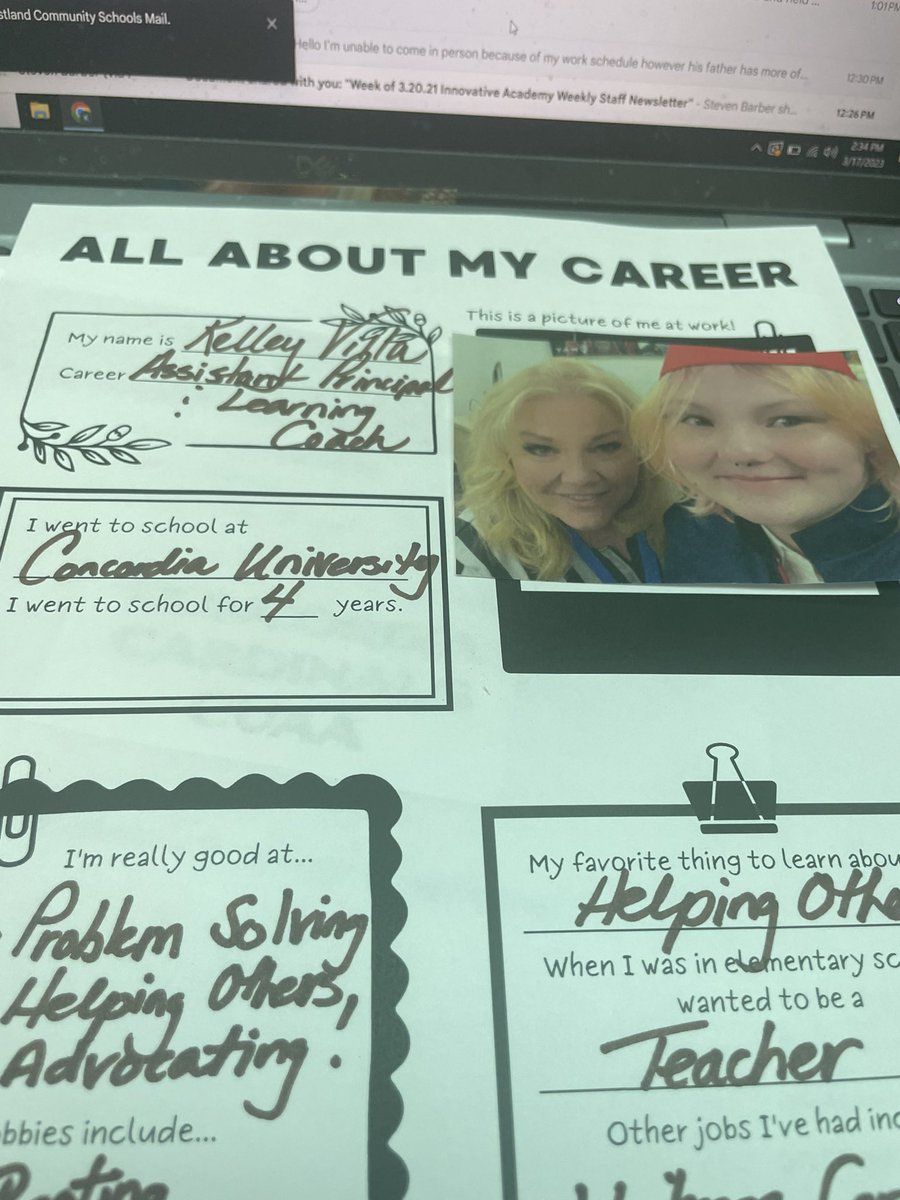 stland Community Schools Mail.
1:01PM
Hello I'm unable to come in person because of my work schedule however his father has more of...
12:30 PM
with you: "Week of 3.20.21 Innovative Academy Weekly Staff Newsletter" - Steven Barber sh...
12:26 PM
2:34 PM
3/17/2023
ALL ABOUT MY CAREER
My name is Kelley Vigta
Career Assistant Principal
: Learning
Coach
This is a picture of me at work!
I went to school at
Concordia University
I went to school for 4 years.
I'm really good at...
Problem Solving
Helping Others,
Advocating.
bbies include...
My favorite thing to learn abou
Helping Othe
When I was in elementary sc
wanted to be a
Teacher
Other jobs I've had inc